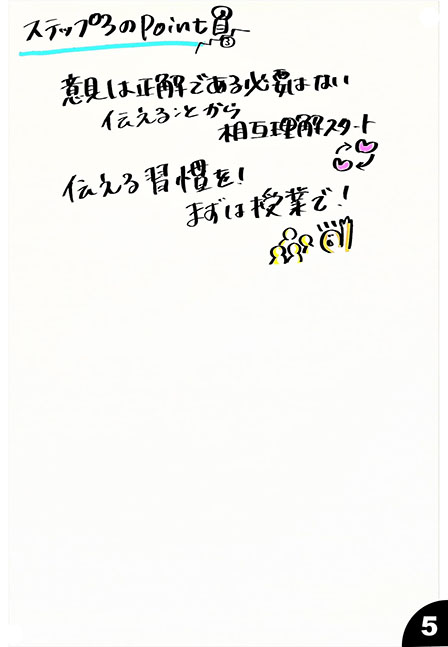 ステップ3のPoint!
3
意見は正解である必要はない
伝えることから
相互理解スタート
伝える習慣を!
まずは授業で!
5